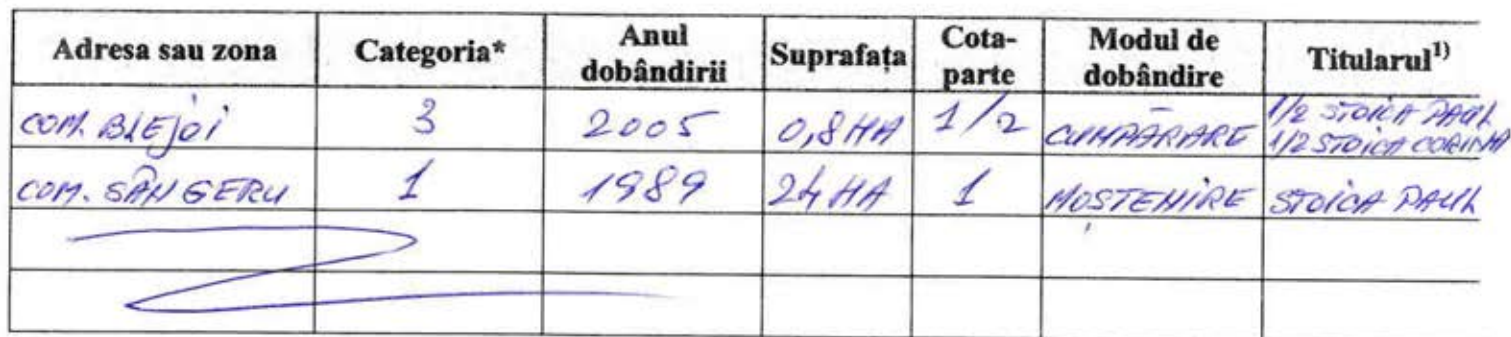 Adresa sau zona Categoria* Anul dobândirii Suprafața Cota-parte Modul de dobândire Titularul1)
COM. BLEJOI 3 2005 0,8 HA 1/2 CUMPĂRARE 1/2 STOICA PAUL
1/2 STOICA CORINA
COM. SÂNGERU 1 1989 24 HA 1 MOȘTENIRE STOICA PAUL